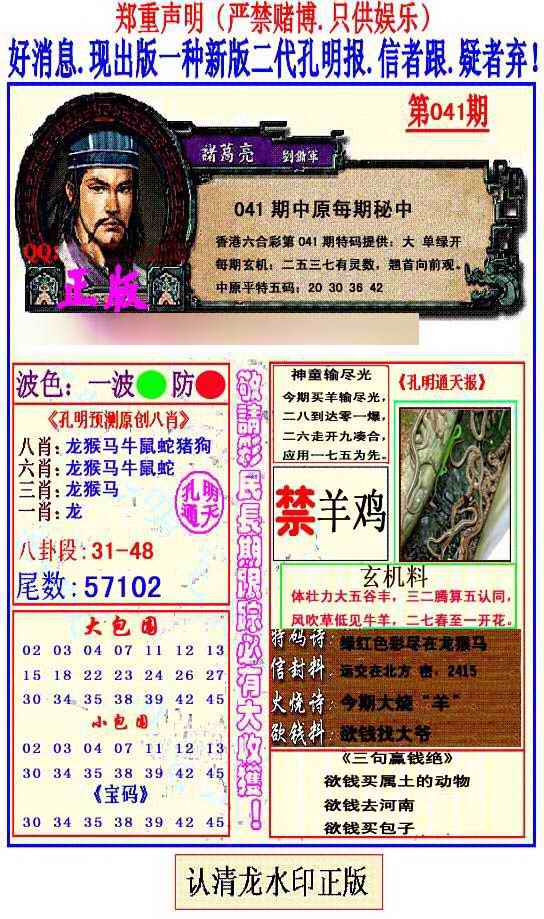 郑重声明（严禁赌博.只供娱乐）
好消息.现出版一种新版二代孔明报.信者跟.疑者弃！
第041期
諸葛亮
041期中原每期秘中
香港六合彩第041期特码提供：大 单绿开
每期玄机：二五三七有灵数，翘首向前观。
中原平特五码：20 30 36 42
QQ:
正版
波色：一波 防
《孔明预测原创八肖》
八肖:龙猴马牛鼠蛇猪狗
六肖:龙猴马牛鼠蛇
三肖:龙猴马
一肖:龙
孔明
通天
八卦段:31-48
尾数:57102
大包围
02 03 04 07 11 12 13
15 18 22 23 24 26 27
30 34 35 38 39 42 45
小包围
02 03 04 07 11 12 13
30 34 35 38 39 42 45
《宝码》
30 34 35 38 39 42 45
敬請彩民長期跟踪必有大收獲！
神童输尽光
今期买羊输尽光，
二八到达零一爆，
二六走开九凑合，
应用一七五为先。
《孔明通天报》
禁羊鸡
玄机料
体壮力大五谷丰，三二腾算五认同，
风吹草低见牛羊，二七春至一开花。
特码诗:绿红色彩尽在龙猴马
信封料:运交在北方 密，2415
火烧诗:今期大烧“羊”
欲钱料:欲钱找大爷
《三句赢钱绝》
欲钱买属土的动物
欲钱去河南
欲钱买包子
认清龙水印正版